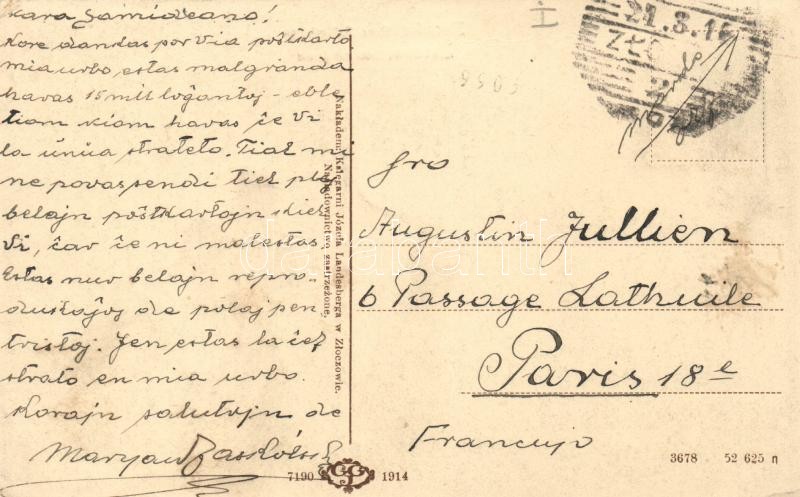 Kara Samideano!
Kore dankas por via poŝtkarto
mia urbo estas malgranda
havas 15 mill loĝantoj - eble
tiom kiom havas ĉe Vi
la unua strateto. Tial mi
ne povas sendi tiel
belajn poŝtkartojn kiel
Vi, ĉar ĉe ni
Estas nur belajn repro-
duktaĵoj de polaj pen-
tristoj. Jen estas la ĉef
strato en mia urbo.
Korajn salutojn de
Maryan
Nakładem Księgarni Józefa Landesberga w Złoczowie.
Naśladownictwo zastrzeżone.
7190
1914
I
21.3.14
Gro
Augustin Jullien
6 Passage Lathuile
Paris 18e
Francujo
3678 52 625 n
darabanth